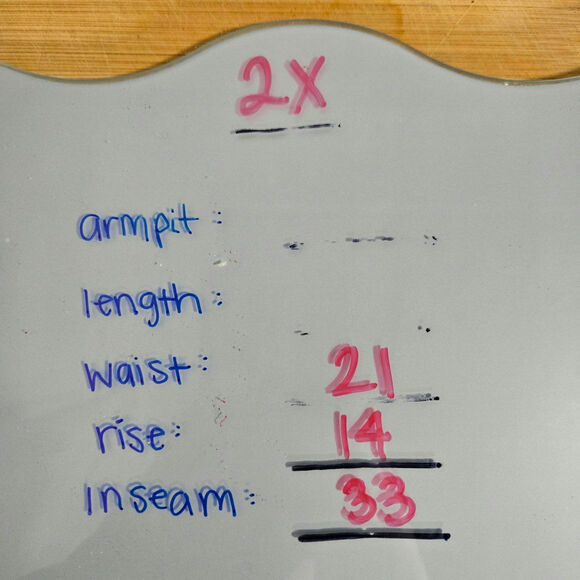 2X
armpit:
length:
waist: 21
rise: 14
inseam: 33